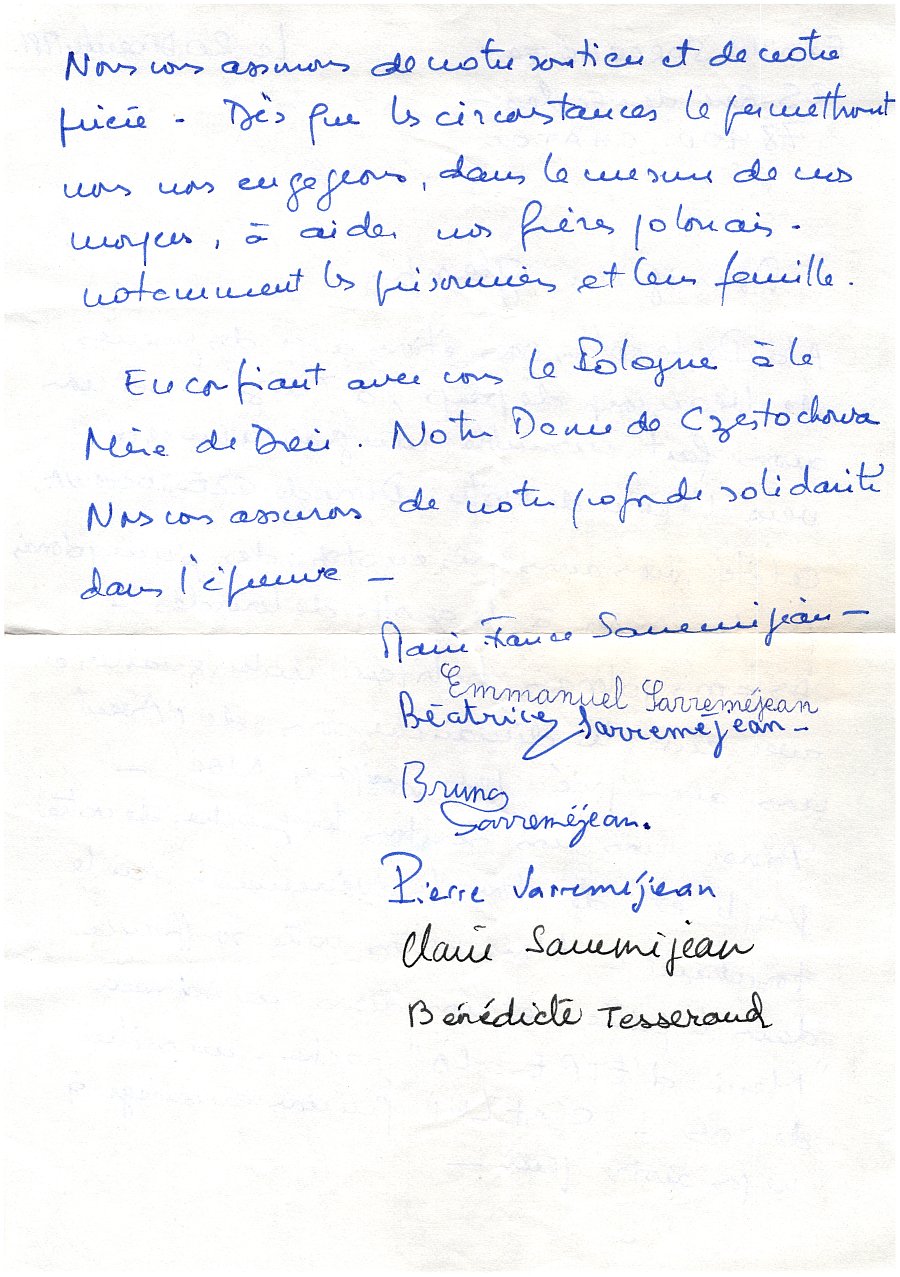 Nous vous assurons de notre soutien et de notre
prière - Dès que les circonstances le permettront
nous nous engageons, dans la mesure de nos
moyens, à aider nos frères polonais.
notamment les prisonniers et leur famille.
En confiant avec vous la Pologne à la
Mère de Dieu. Notre Dame de Częstochowa
Nous vous assurons de notre profonde solidarité
dans l'épreuve -
Marie-France Sarreméjean -
Emmanuel Sarreméjean
Béatrice Sarreméjean -
Bruno
Sarreméjean.
Pierre Sarreméjean
Claire Sarreméjean
Bénédicte Tesseraud